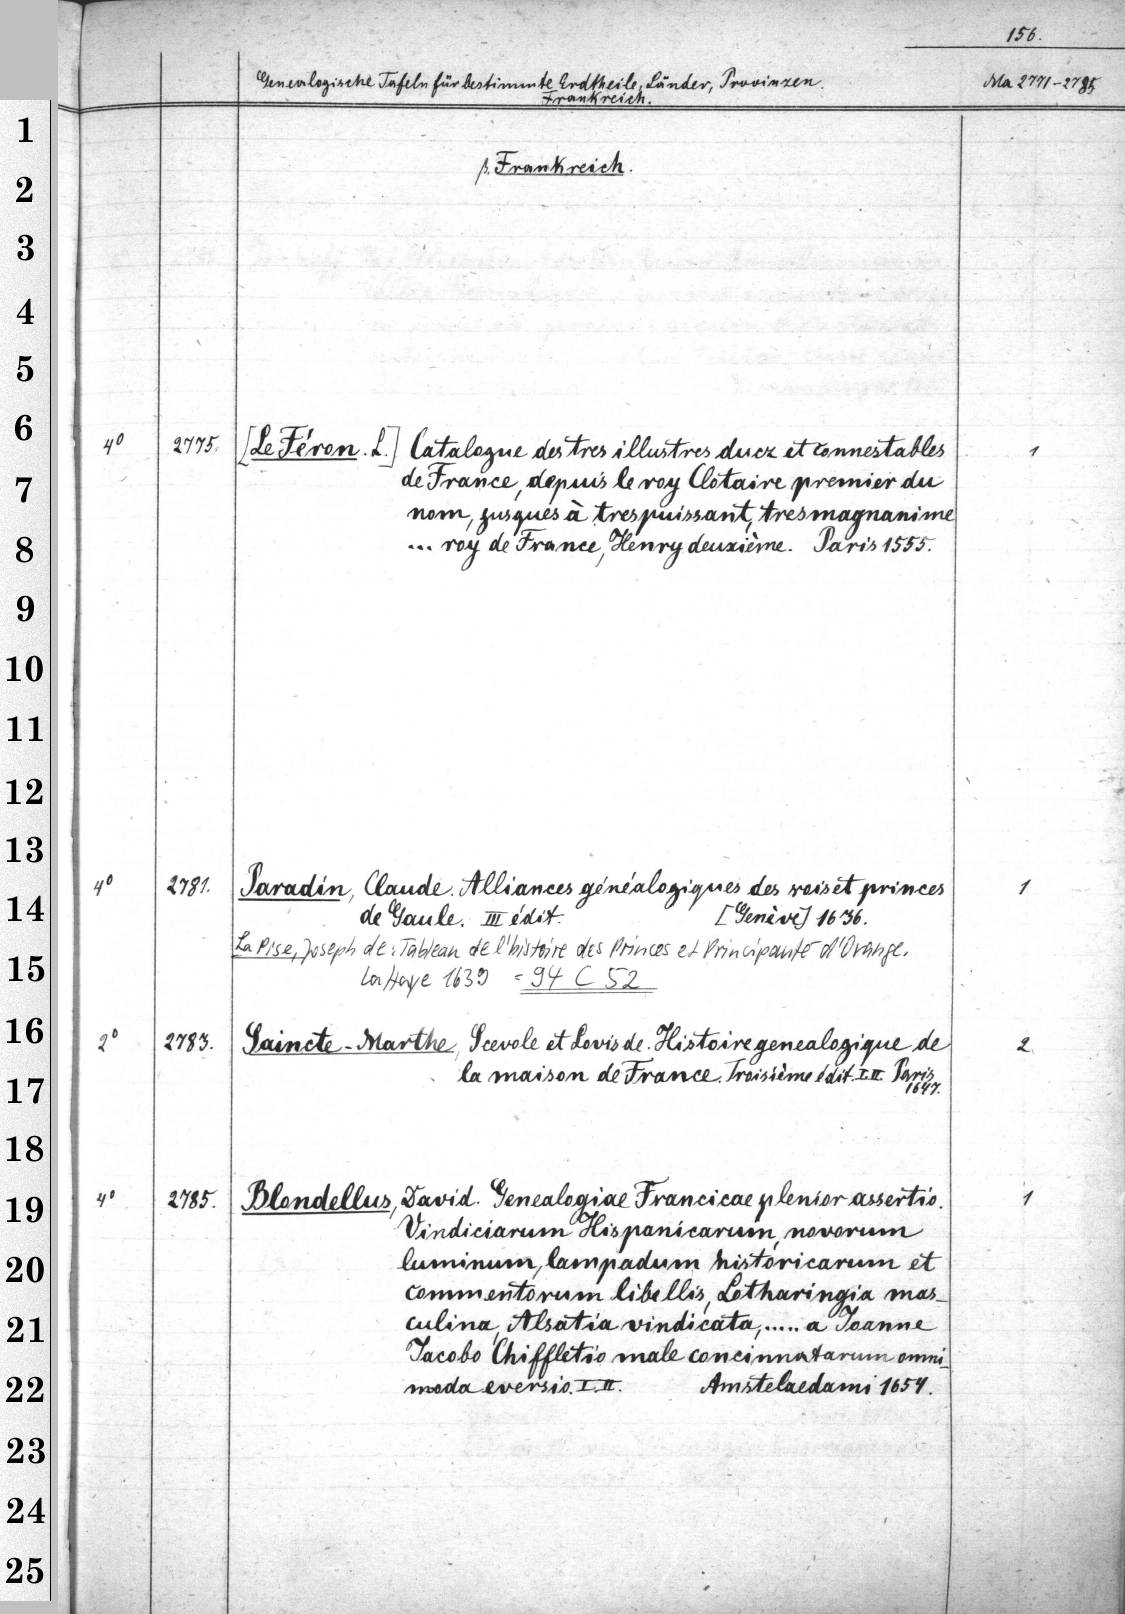 156.
Genealogische Tafeln für bestimmte Erdtheile, Länder, Provinzen. Ma 2771-2785
Frankreich.
1
β. Frankreich.
2
3
4
5
6
4° 2775. [Le Féron. L.] Catalogue des tres illustres ducz et connestables 1
de France, depuis le roy Clotaire premier du
7
nom, jusques à trespuissant, tresmagnanime
8
... roy de France, Henry deuxième. Paris 1555.
9
10
11
12
13
4° 2781. Paradin, Claude. Alliances généalogiques des rois et princes 1
14
de Gaule. III édit. [Genève] 1636.
La Pise, Joseph de: Tableau de l'histoire des Princes et Principauté d'Orange.
15
La Haye 1639 = 94 C 52
16
2° 2783. Saincte-Marthe, Scevole et Lovis de. Histoire genealogique de 2
la maison de France. Troisième édit. I.II. Paris
1647.
17
18
4° 2785. Blondellus, David. Genealogiae Francicae plenior assertio. 1
19
Vindiciarum Hispanicarum, novorum
luminum, lampadum historicarum et
20
commentorum libellis, Lotharingia mas-
culina, Alsatia vindicata, ..... a Joanne
21
Jacobo Chiffletio male concinnatarum omni-
moda eversio. I.II. Amstelaedami 1654.
22
23
24
25